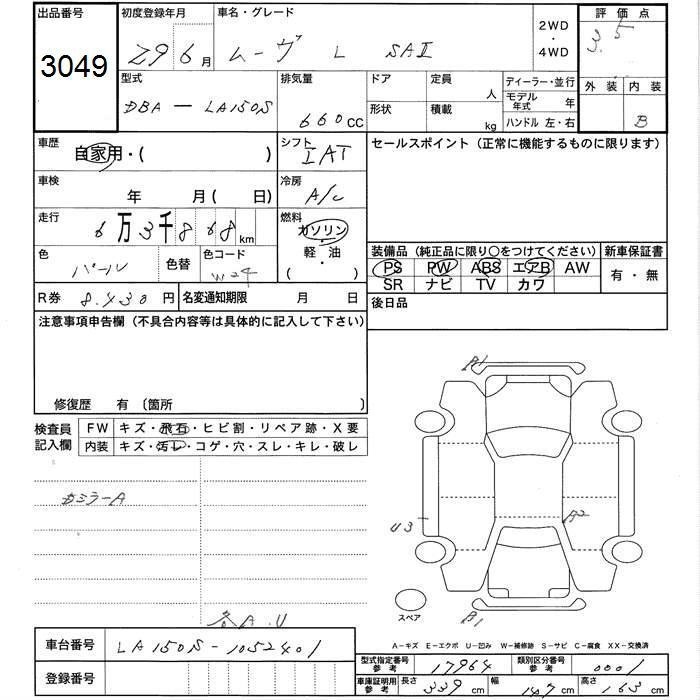 出品番号
3049
初度登録年月
29 6 月
車名・グレード
ムーヴ L SAⅡ
2WD
・
4WD
評価点
3.5
外装 内装
B
型式
DBA - LA150S
排気量
660 CC
ドア
形状
定員
人
積載
kg
ディーラー・並行
モデル年式 年
ハンドル 左・右
車歴
自家用・( )
シフト
IAT
セールスポイント (正常に機能するものに限ります)
車検
年 月( 日)
冷房
A/C
走行
6万3千868 km
燃料
ガソリン
・
軽・油
( )
色
パール
色替
色コード
W24
装備品 (純正品に限り○をつけてください)
新車保証書
PS PW ABS エアB AW
SR ナビ TV カワ
有・無
R券 8.430 円
名変通知期限 月 日
後日品
注意事項申告欄 (不具合内容等は具体的に記入して下さい)
修復歴 有 〔箇所 〕
検査員
記入欄
FW キズ・飛石・ヒビ割・リペア跡・X要
内装 キズ・汚レ・コゲ・穴・スレ・キレ・破レ
ミラーA
各A.U
A1
U3
A2
B1
スペア
A-キズ E-エクボ U-凹み W-補修跡 S-サビ C-腐食 XX-交換済
車台番号 LA150S-1052401
登録番号
型式指定番号
参考
17964
類別区分番号
参考
0001
車庫証明用
参考
長さ 339 cm
幅 147 cm
高さ 163 cm